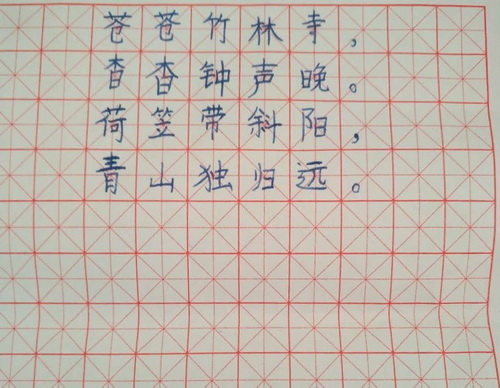 苍苍竹林寺，
杳杳钟声晚。
荷笠带斜阳，
青山独归远。